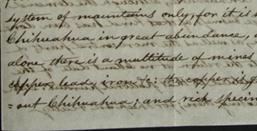 system of mountains only, for it is
Chihuahua in great abundance,
alone there is a multitude of mines
copper, lead, iron &c; the copper is
=out Chihuahua; and rich specim